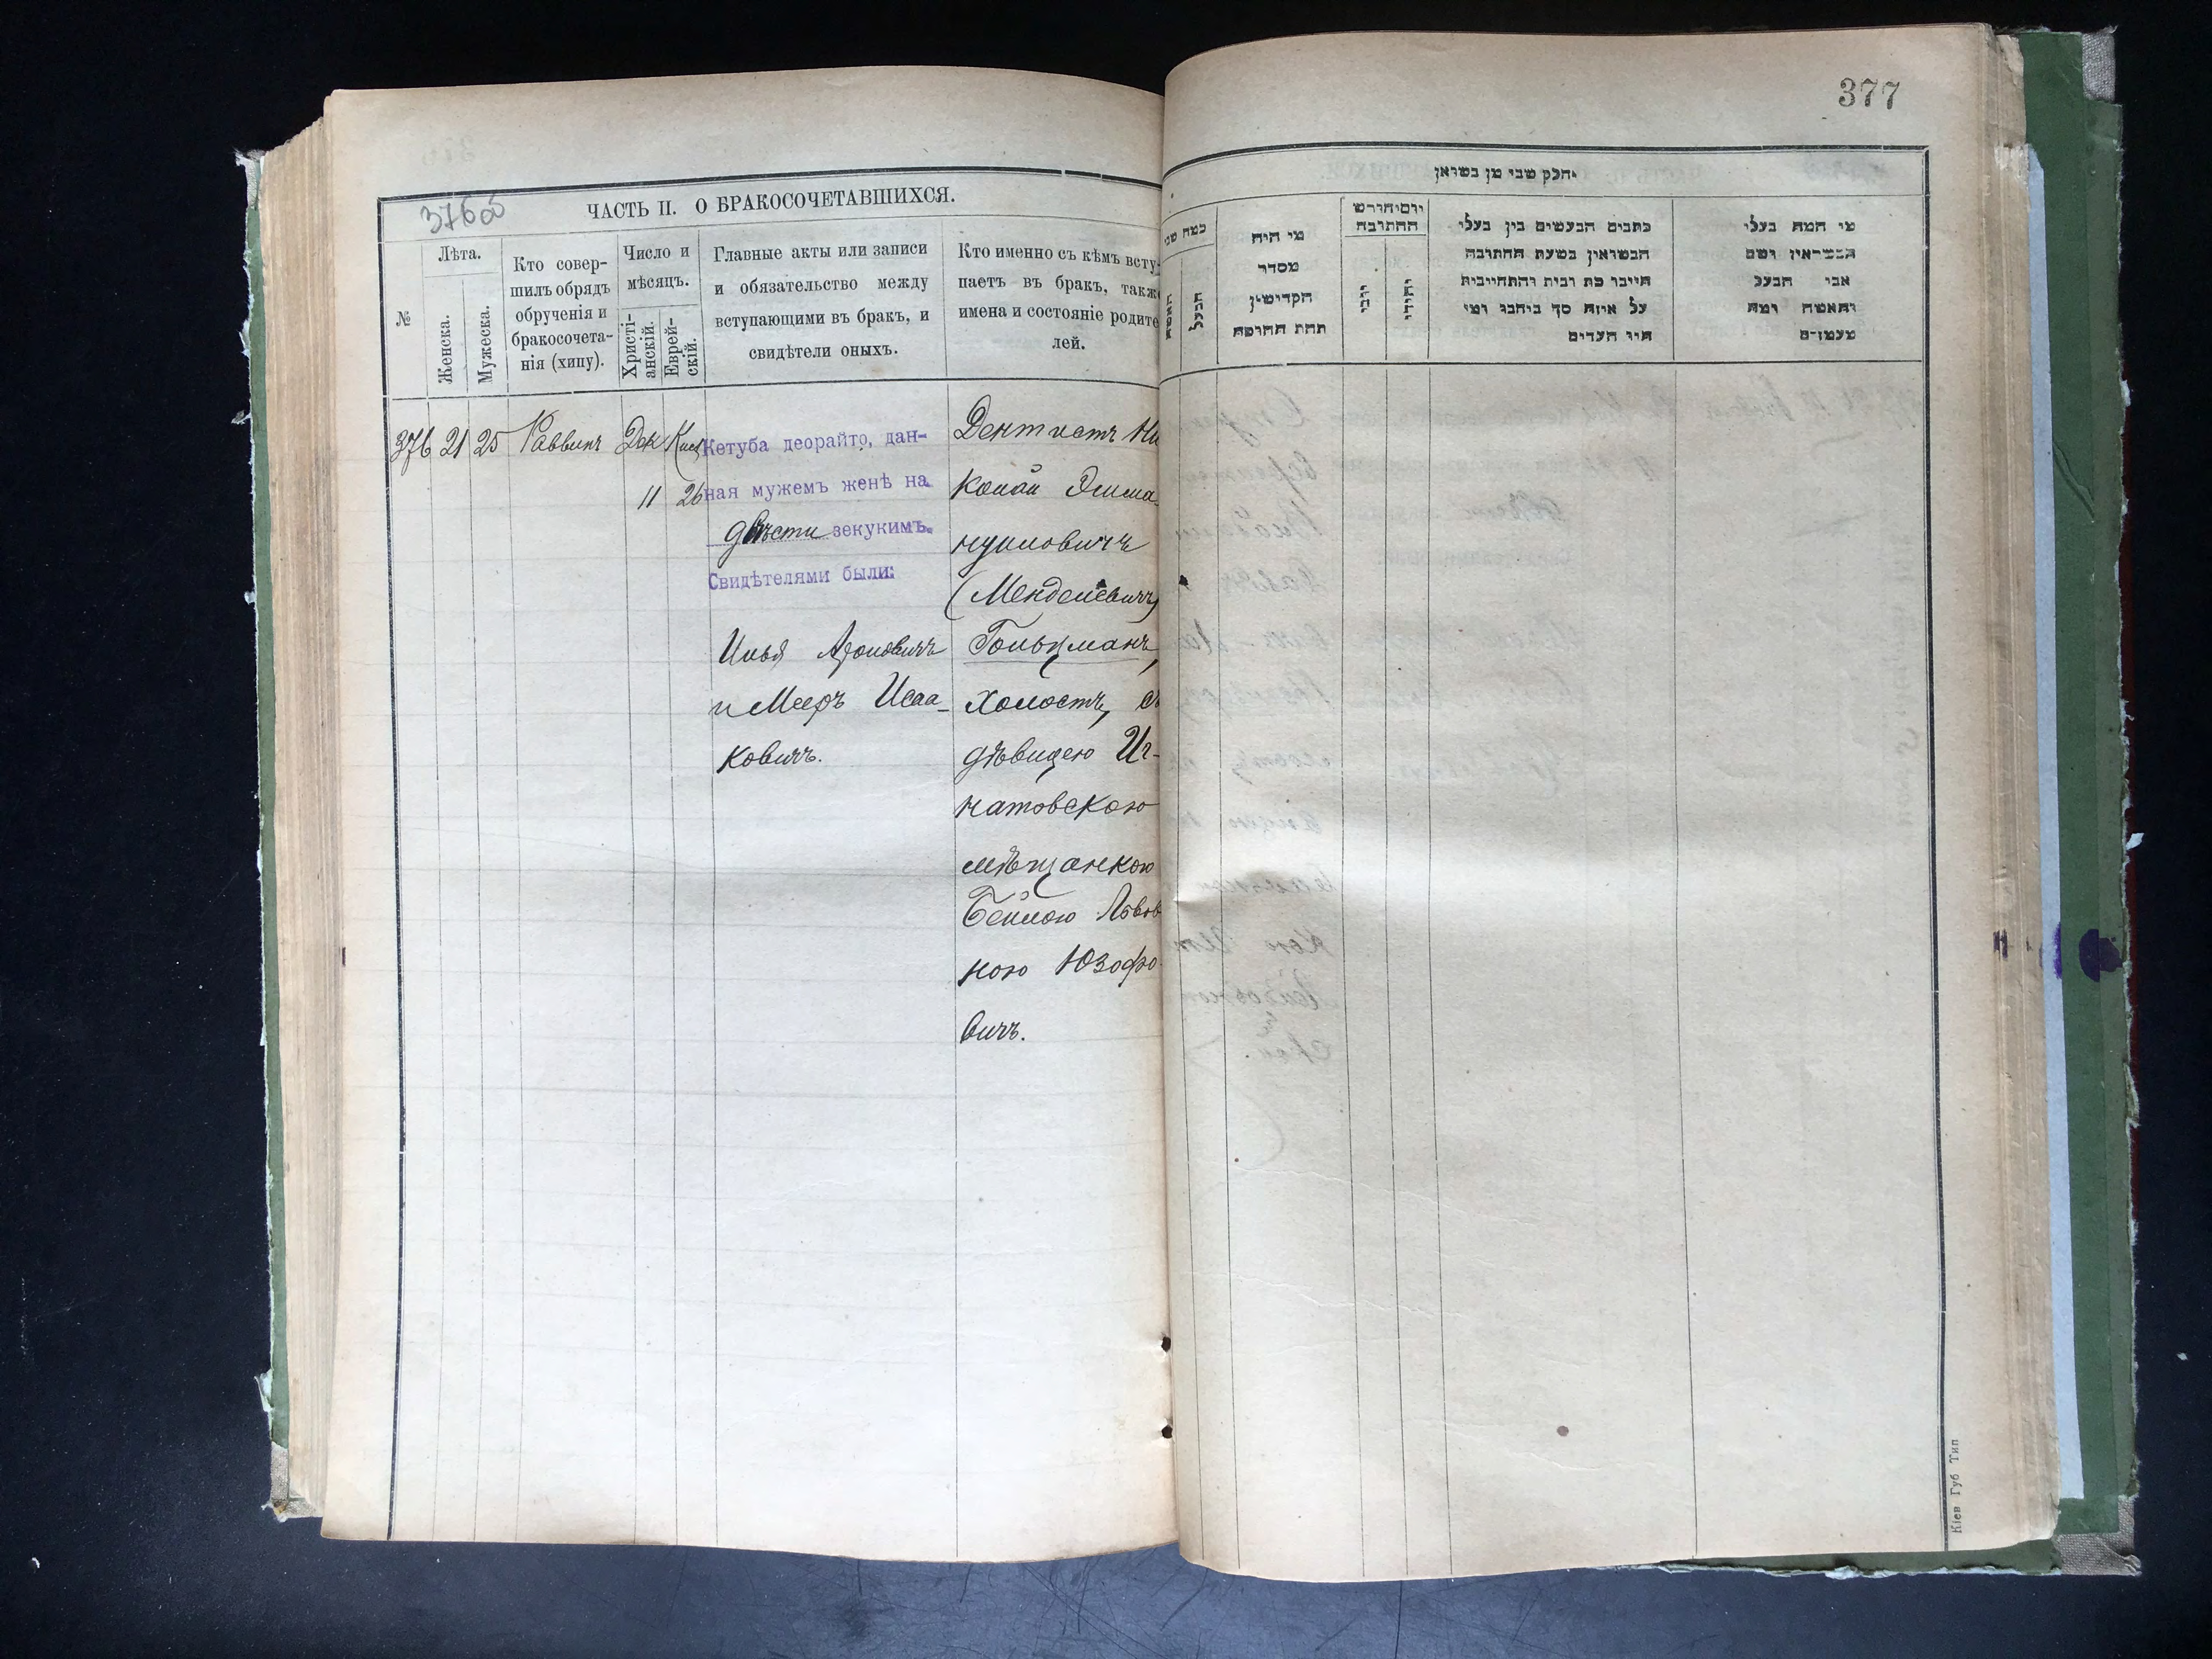 377
376об
ЧАСТЬ II. О БРАКОСОЧЕТАВШИХСЯ.
№
Лѣта.
Женска.
Мужеска.
Кто совер-
шилъ обрядъ
обрученія и
бракосочета-
нія (хипу).
Число и
мѣсяцъ.
Христі-
анскій.
Еврей-
скій.
Главные акты или записи
и обязательство между
вступающими въ бракъ, и
свидѣтели оныхъ.
Кто именно съ кѣмъ всту-
паетъ въ бракъ, также
имена и состояніе родите
лей.
376 21 25 Раввинъ Дек Кисл
11 26
Кетуба деорайто, дан-
ная мужемъ женѣ на
двѣсти зекукимъ.
Свидѣтелями были:
Илья Ароновичъ
и Мееръ Исаа-
ковичъ.
Дентистъ Ни
колай Эмма-
нуиловичъ
(Менделевичъ)
Гольцманъ,
холостъ, съ
дѣвицею Иг-
натовскою
мѣщанкою
Бейлою Львов
ною Юзефо
вичъ.
חלק שני מן נשואין
כמה שני
האשה
הבעל
מי היה
מסדר
הקדישין
תחת החופה
יום וחודש
החתונה
נוצרי
יהודי
כתבים הנעשים בין בעלי
הנשואין בשעת החתונה
חייבר כת ובית והתחייבות
על איזה סך ביחבו ומי
היו העדים
מי המה בעלי
הנשואין ושם
אבי הבעל
והאשה ומה
מעמדם
Кіев Губ Тип